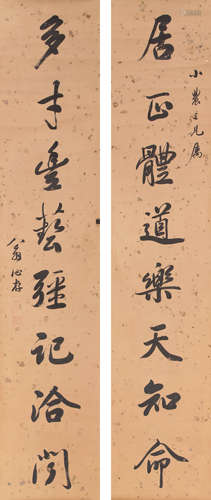 居正體道樂天知命
小農仁兄屬
多才豐藝彊記洽聞
翁心存